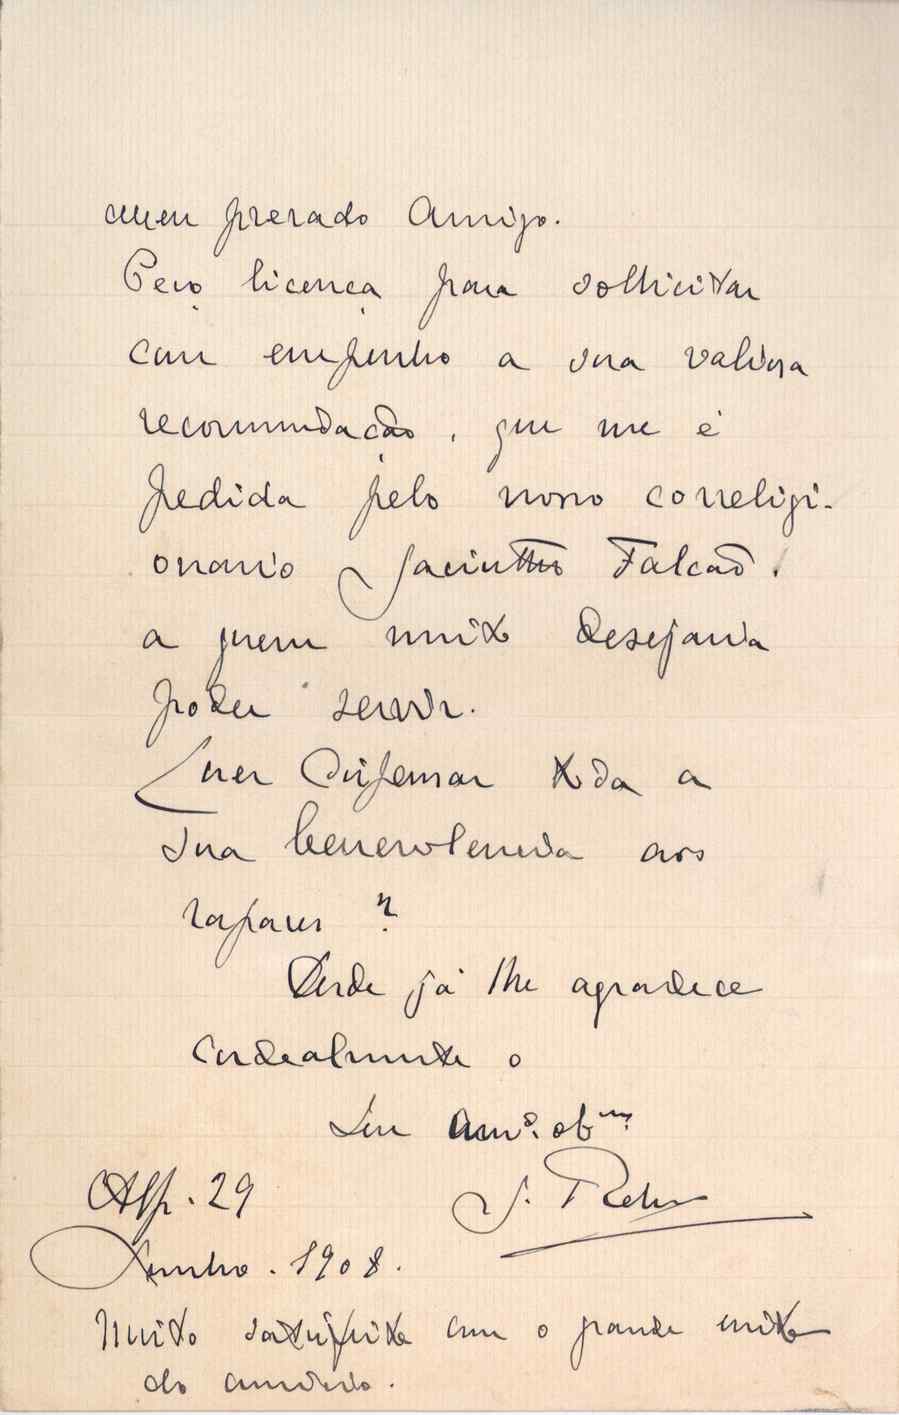 Meu prezado Amigo.
Peço licença para sollicitar
com empenho a sua valiosa
recommendação, que me é
pedida pelo nosso correligi-
onario Jacintho Falcão.
a quem muito desejaria
poder servir.
Quer dispensar toda a
sua benevolencia aos
rapazes?
Desde já lhe agradece
cordealmente o
Seu Am.º ob.mo
Alp. 29 J.
Junho. 1908.
Muito satisfeito com o grande exito
do comicio.